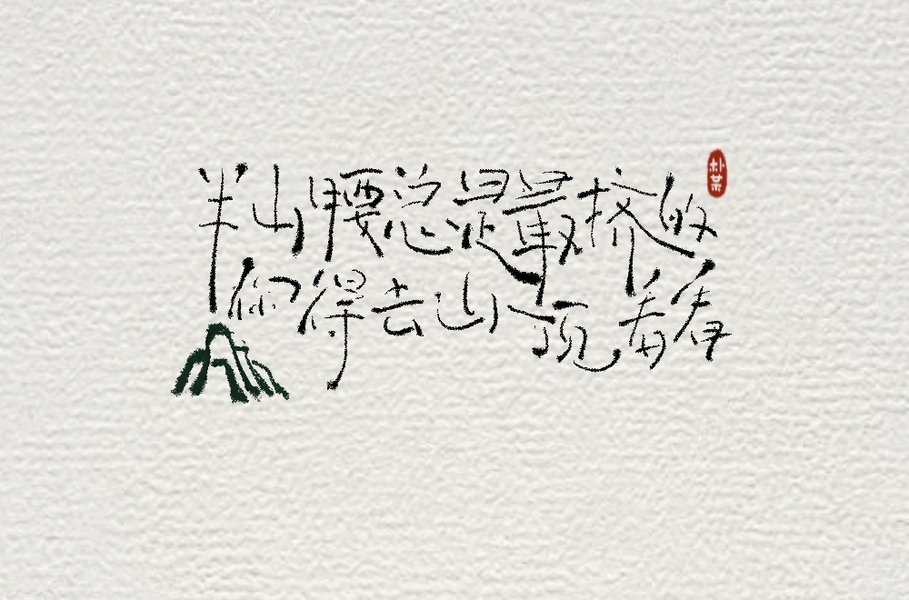 半山腰总是最挤的
你得去山顶看看
朴某